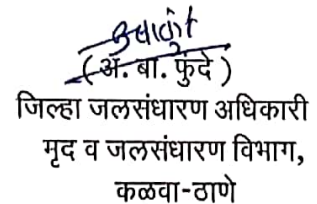 ( अ. बा. फुंदे )
जिल्हा जलसंधारण अधिकारी
मृद व जलसंधारण विभाग,
कळवा-ठाणे